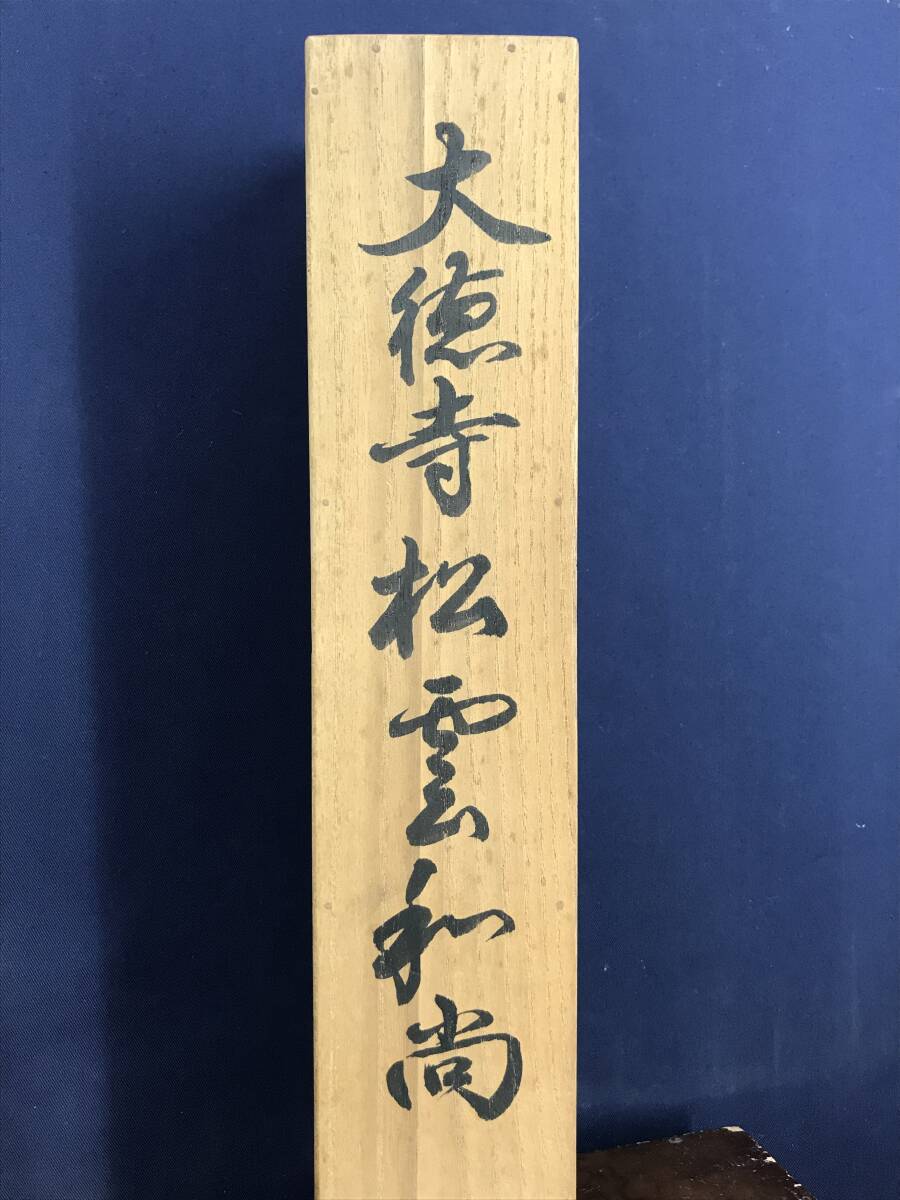 大徳寺松雲和尚